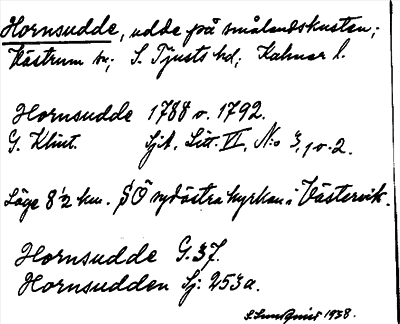 Hornsudde, udde på smålandskusten;
Västrum sn; S. Tjusts hd; Kalmar l.
Hornsudde 1788 o. 1792.
G. Klint. Sjk. Litt. II, N:o 3, 1 o. 2.
Läge 8½ km. SÖ sydöstra kyrkan i Västervik.
Hornsudde G. 37.
Hornsudden Sj: 253a.
1938.